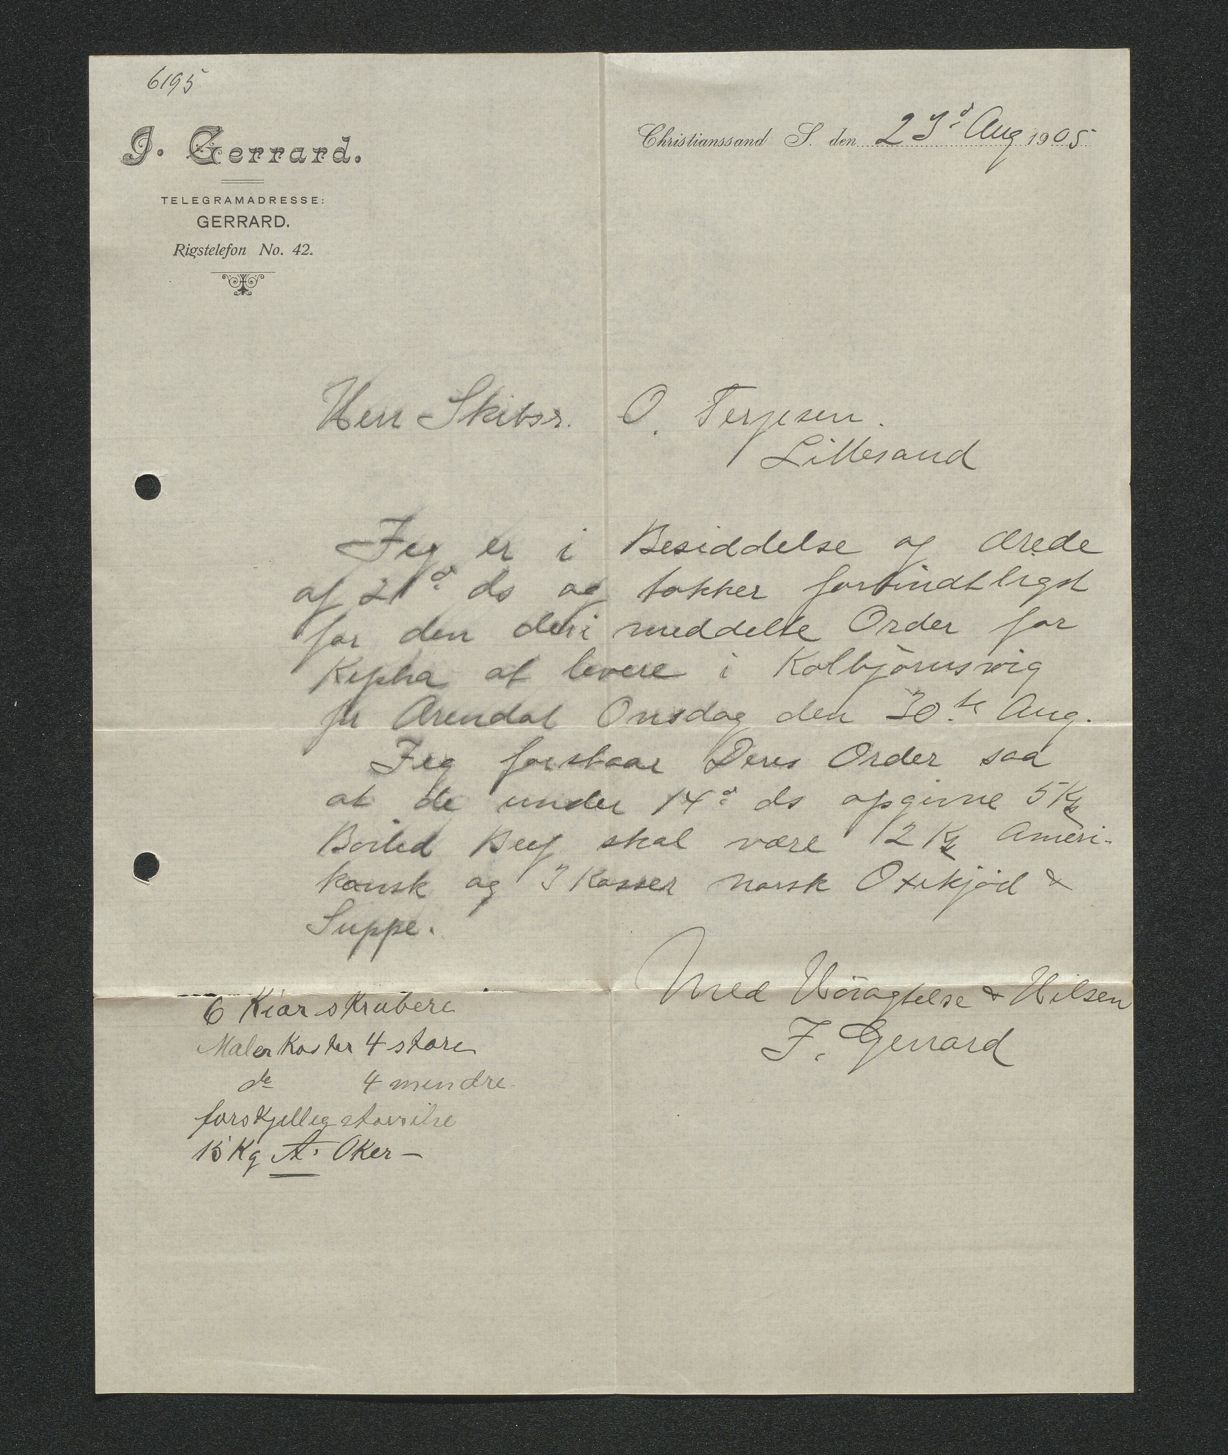 6195
J. Gerrard.
Christianssand S. den 23d Aug 1905
TELEGRAMADRESSE:
GERRARD.
Rigstelefon No. 42.
Herr Skibsr. O. Terjesen.
Lillesand
Jeg er i Besiddelse af ærede
af 21d ds og takker forbindtligst
for den deri meddelte Order for
Kepha at levere i Kolbjörnsvig
pr Arendal Onsdag den 30te Aug.
Jeg forstaar Deres Order saa
at de under 14d ds opgivne 5 Kg
Boiled Beef skal være 12 Kg Ameri-
kansk og 3 Kasser norsk Oxekjöd &
Suppe.
Med Höiagtelse & Hilsen
J. Gerrard
6 Kiar skrubere
Maler Koster 4 store
do 4 mindre
forskjellig
15 Kg A. Oker —